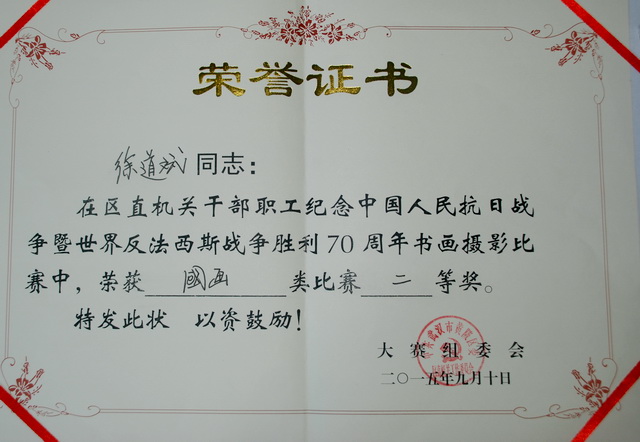 荣誉证书
徐道斌同志：
在区直机关干部职工纪念中国人民抗日战
争暨世界反法西斯战争胜利70周年书画摄影比
赛中，荣获國画类比赛二等奖。
特发此状 以资鼓励！
大赛组委会
二〇一五年九月十日